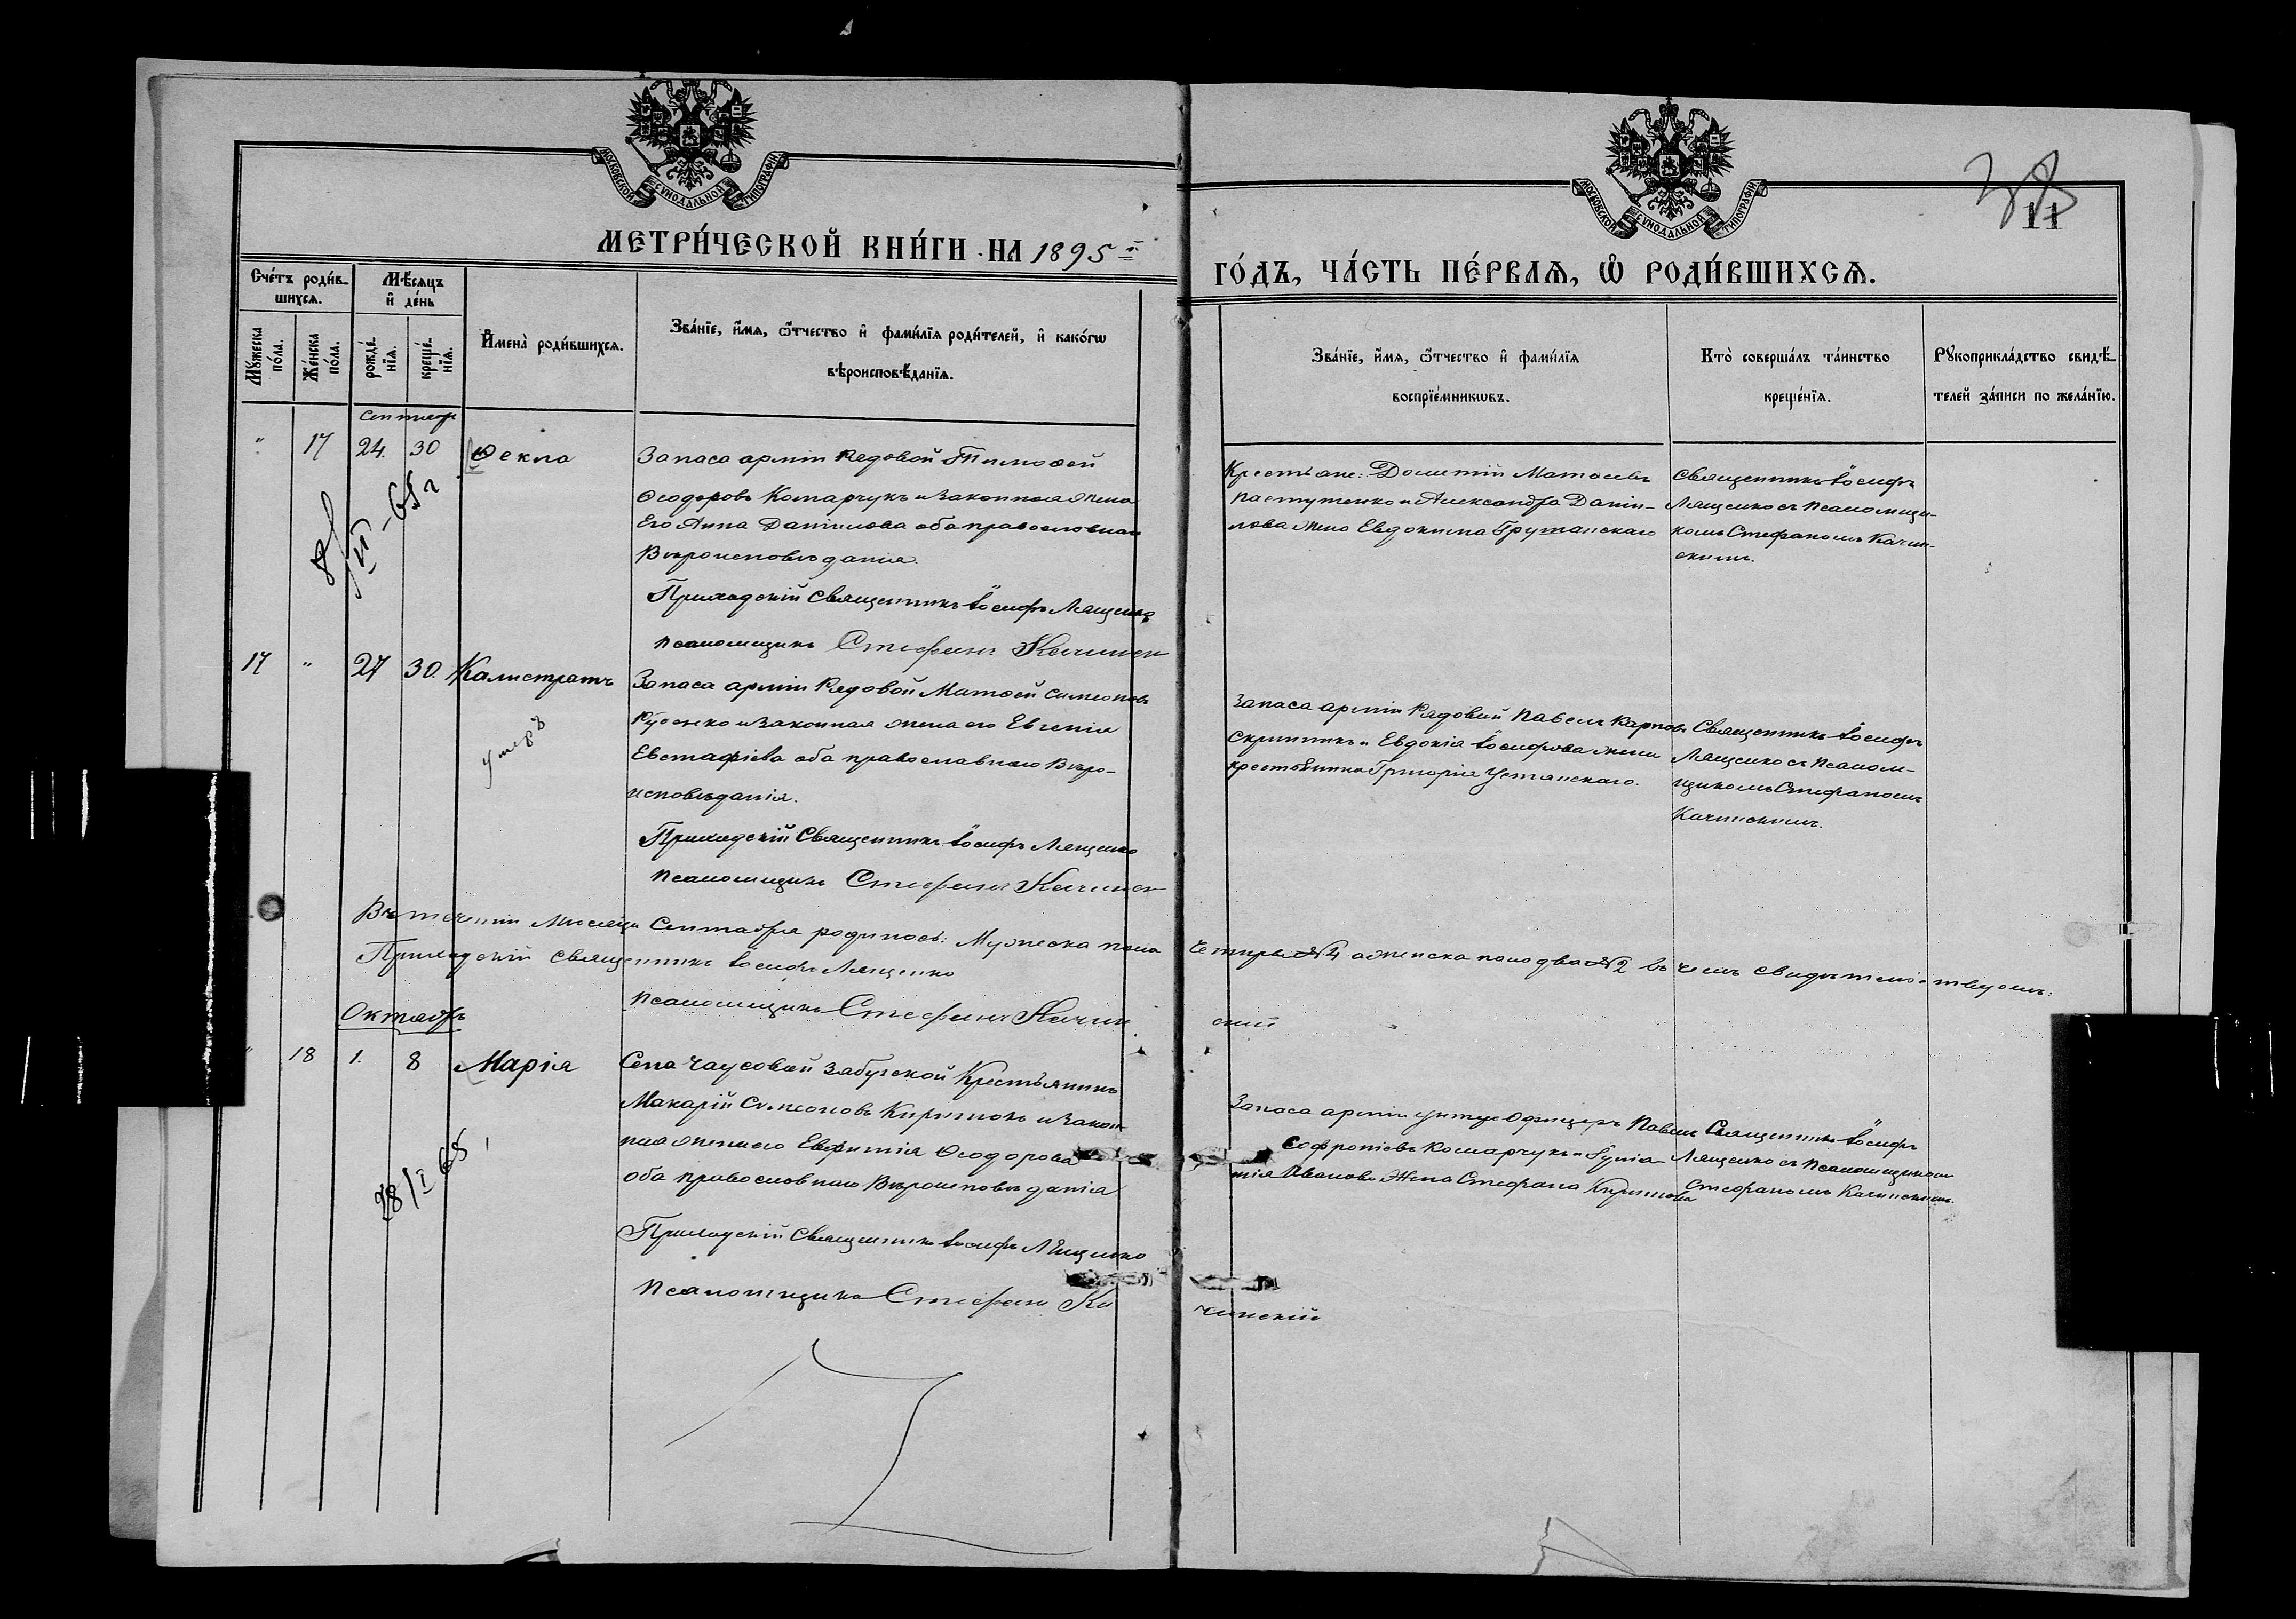 МОСКОВСКОЙ СѴНОДАЛЬНОЙ ТИПОГРАФІИ
МОСКОВСКОЙ СѴНОДАЛЬНОЙ ТИПОГРАФІИ
38
11
МЕТРИ́ЧЕСКОЙ КНИ́ГИ НА 1895 й
ГО́ДЪ, ЧА́СТЬ ПЕ́РВАѦ, Ѡ҆ РОДИ́ВШИХСѦ.
Сче́тъ роди́в-
шихсѧ.
Мѣ́сѧцъ
и҆ де́нь
Мꙋ́жеска
по́ла.
Же́нска
по́ла.
рожде́-
нїѧ.
креще́-
нїѧ.
И҆мена̀ роди́вшихсѧ.
Зва́нїе, и҆́мѧ, ѻ҆́тчество и҆ фами́лїѧ роди́телей, и҆ како́гѡ
вѣроисповѣ́данїѧ.
Зва́нїе, и҆́мѧ, ѻ҆́тчество и҆ фами́лїѧ
воспрїе́мникѡвъ.
Кто̀ соверша́лъ та́инство
креще́нїѧ.
Рꙋкоприкла́дство свидѣ́-
телей за́писи по жела́нїю.
Сентябр
" 17 24. 30 Ѳекла
Запаса арміи Рядовой Тимоѳей
Ѳеодоровъ Комарчукъ и законная жена
Его Анна Даніилова оба православнаго
Вѣроисповѣданія.
Приходскій Священникъ Іосифъ Лященко
Псаломщикъ Стефанъ Качинск
Крестьяне: Дометій Матѳіевъ
Пастушенко и Александра Даніи-
лова жена Евдокима Грушанскаго
Священникъ Іосифъ
Лященко съ Псаломщи-
комъ Стефаномъ Качин-
скимъ.
17 " 27 30. Калистратъ
умер 8
Запаса арміи Рядовой Матѳей Симеоновъ
Рубенко и законная жена его Евгенія
Евстафіева оба православнаго Вѣро-
исповѣданія.
Приходскій Священникъ Іосифъ Лященко
Псаломщикъ Стефанъ Качинск
Запаса арміи Рядовый Павелъ Карповъ
Скрипникъ и Евдокія Іосифова жена
крестьянина Григорія Устянскаго.
Священникъ Іосифъ
Лященко съ Псалом-
щикомъ Стефаномъ
Качинскимъ.
Въ теченіи Мѣсяца Сентября родилось: Мужеска пола четыре №4 а женска пола два №2 въ чемъ свидѣтельствуемъ:
Приходскій Священникъ Іосифъ Лященко
Псаломщикъ Стефанъ Качин ский
Октябрь
" 18 1. 8 Марія
28/I 65
Села Чаусовой Забугской Крестьянинъ
Макарій Симеоновъ Киримовъ и Закон-
ная жена его Евфимія Ѳеодорова
оба православнаго Вѣроисповѣданія
Приходскій Священникъ Іосифъ Лященко
Псаломщикъ Стефанъ Ка чинскій
Запаса арміи унтер Офицеръ Павелъ
Софроніевъ Комарчукъ и
Иванова Жена Стефана Киримова
Священникъ Іосифъ
Лященко съ Псаломщикомъ
Стефаномъ Качинскимъ.